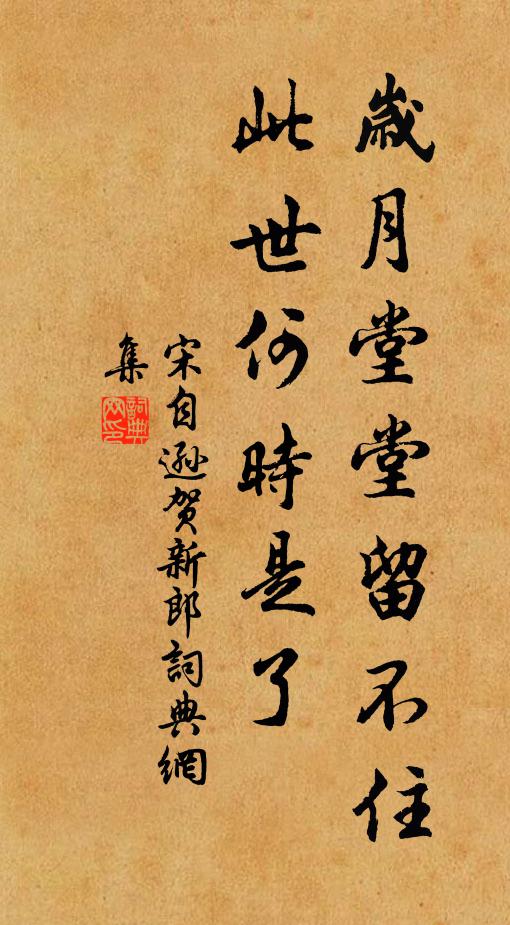 歲月堂堂留不住
此世何時是了
宋自遜賀新郎詞典網
集
詞典
網印